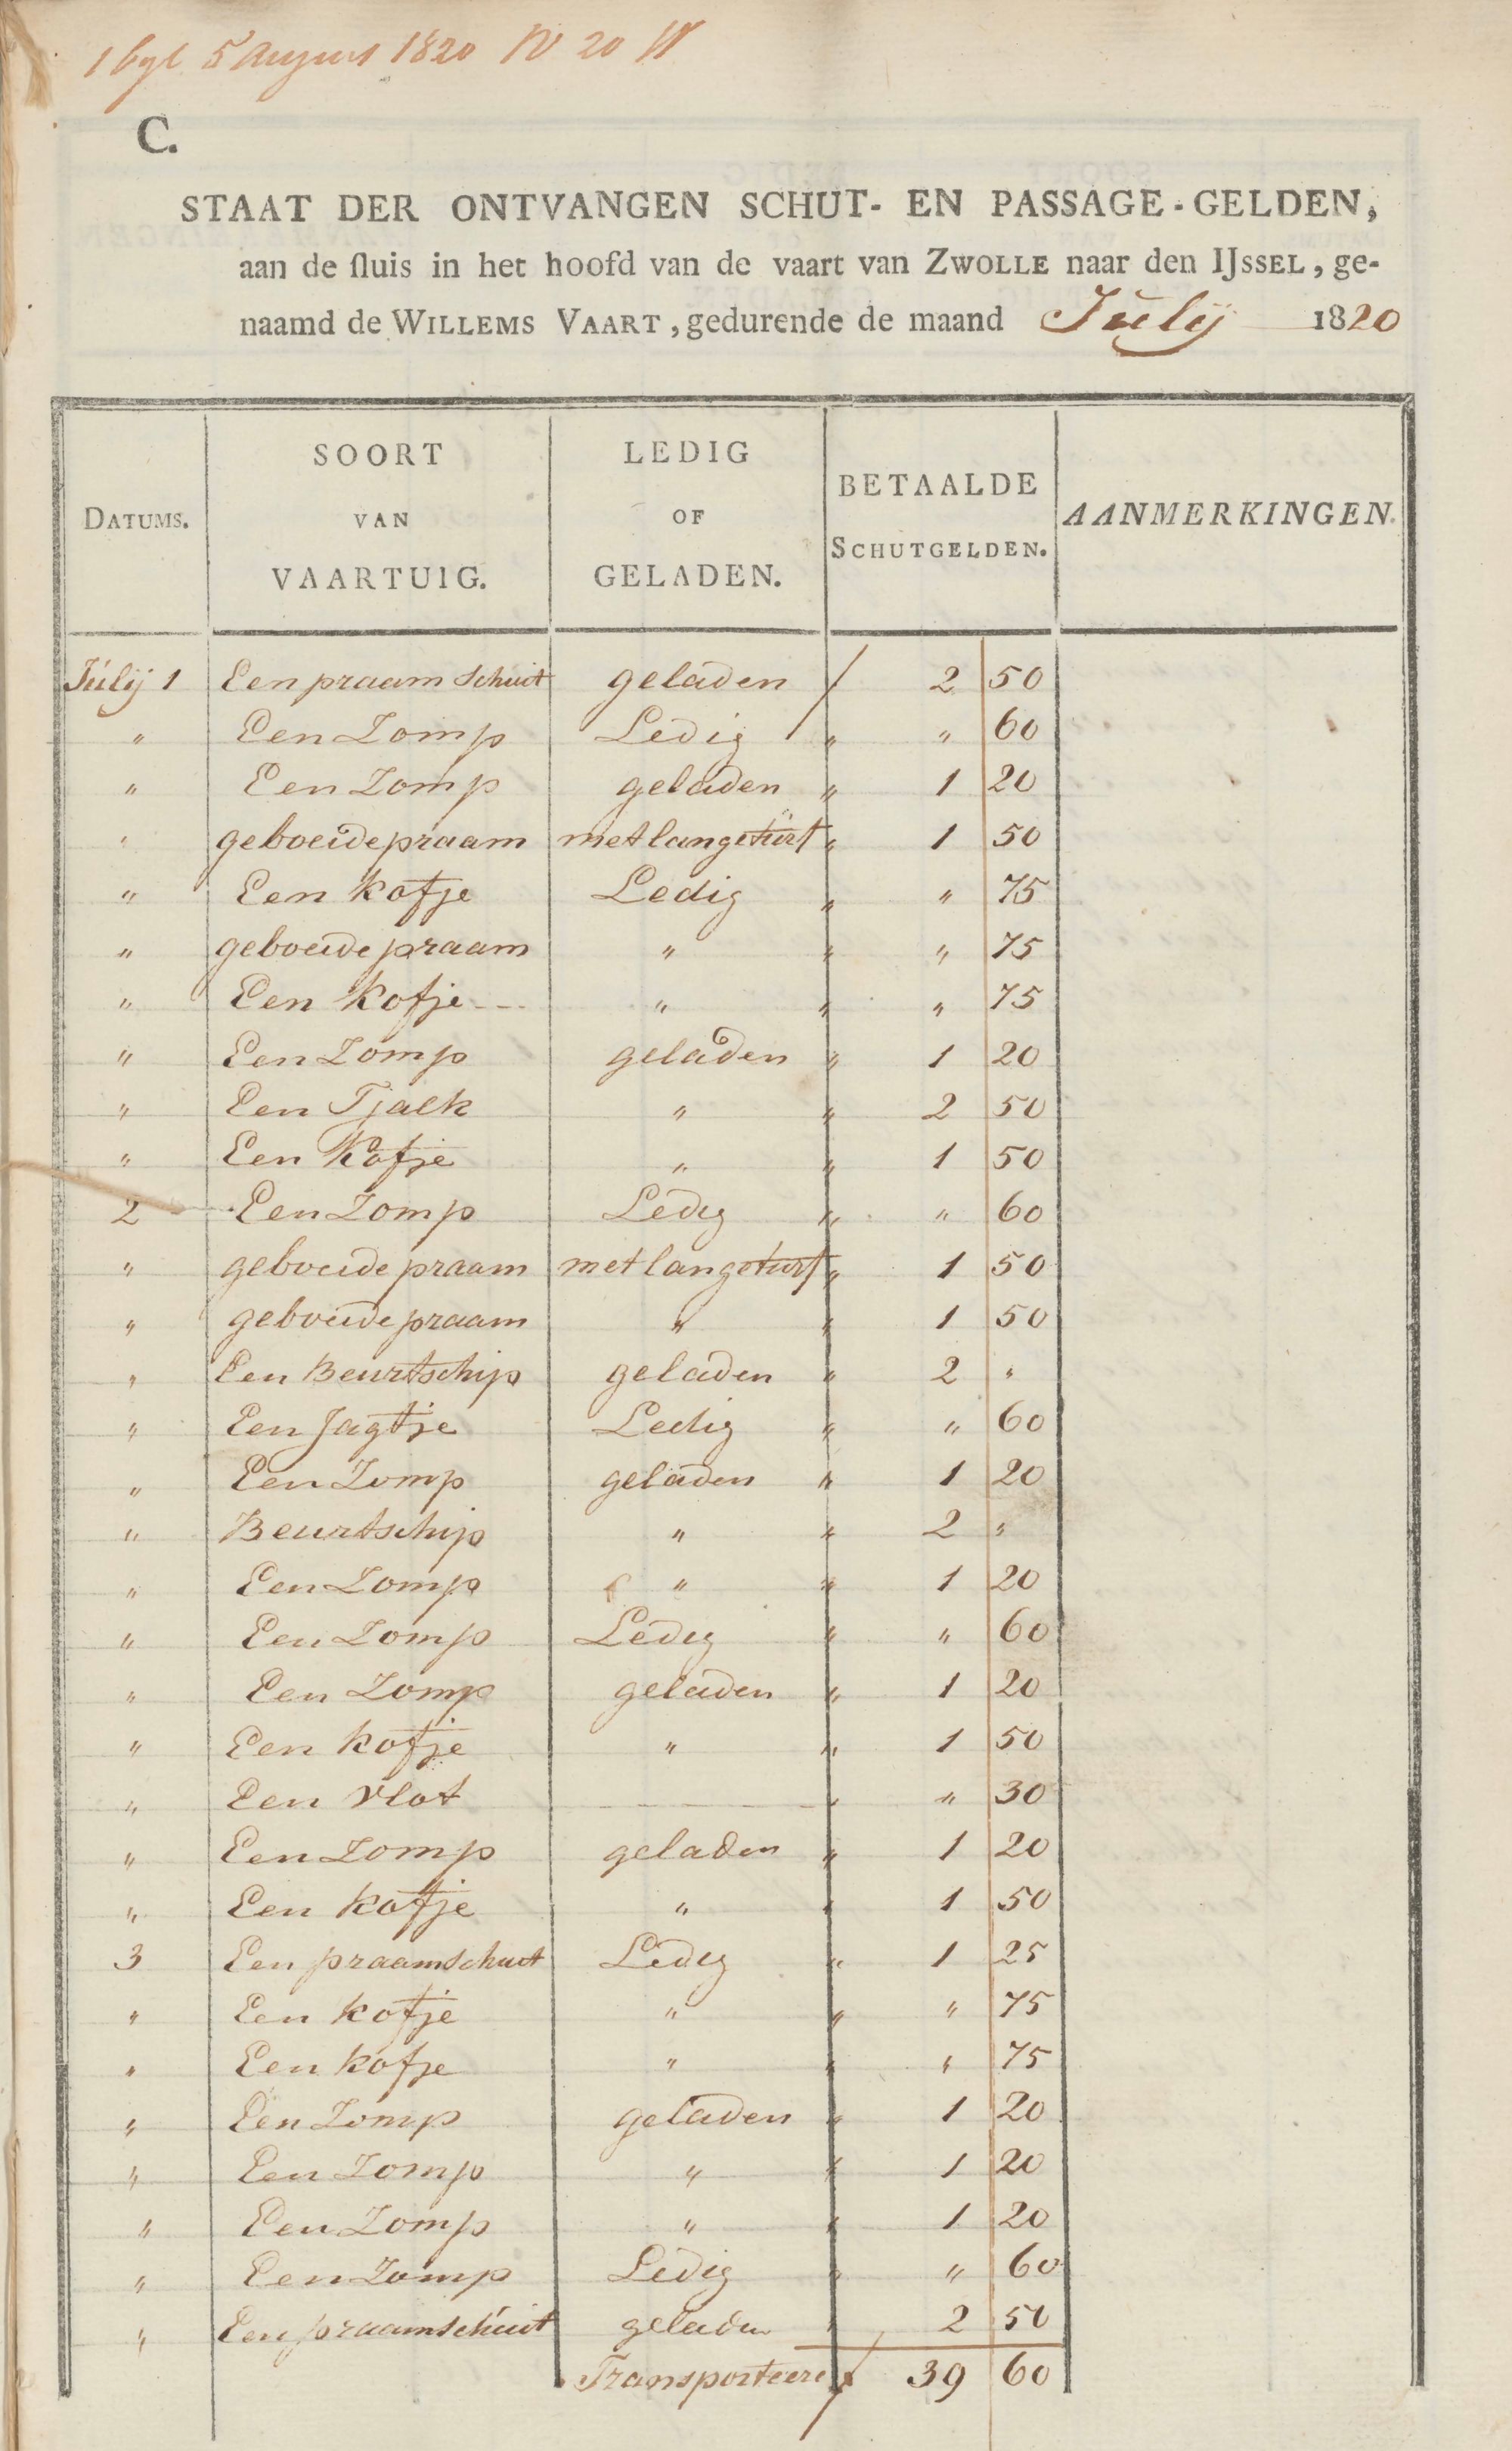 5 August 1820 N 20
C.
STAAT DER ONTVANGEN SCHUT- EN PASSAGE-GELDEN,
aan de sluis in het hoofd van de vaart van ZWOLLE naar den IJSSEL, ge-
naamd de WILLEMS VAART, gedurende de maand Julij 1820
DATUMS. SOORT VAN VAARTUIG. LEDIG OF GELADEN. BETAALDE SCHUTGELDEN. AANMERKINGEN.
Julij 1 Een praam schuit geladen ƒ 2 50
" Een Zomp Ledig " " 60
" Een Zomp geladen " 1 20
" geboeide praam met lange turf " 1 50
" Een kofje Ledig " " 75
" geboeide praam " " " 75
" Een Kofje " " " 75
" Een Zomp geladen " 1 20
" Een Tjalk " " 2 50
" Een Kofje " " 1 50
2 Een Zomp Ledig " " 60
" geboeide praam met lange turf " 1 50
" geboeide praam " " 1 50
" Een Beurtschip geladen " 2 "
" Een Jagtje Ledig " " 60
" Een Zomp geladen " 1 20
" Beurtschip " " 2 "
" Een Zomp " " 1 20
" Een Zomp Ledig " " 60
" Een Zomp geladen " 1 20
" Een kofje " " 1 50
" Een vlot " " 30
" Een Zomp geladen " 1 20
" Een kofje " " 1 50
3 Een praamschuit Ledig " 1 25
" Een kofje " " " 75
" Een kofje " " " 75
" Een Zomp geladen " 1 20
" Een Zomp " " 1 20
" Een Zomp " " 1 20
" Een Zomp Ledig " " 60
" Een praamschuit geladen " 2 50
Transporteere ƒ 39 60